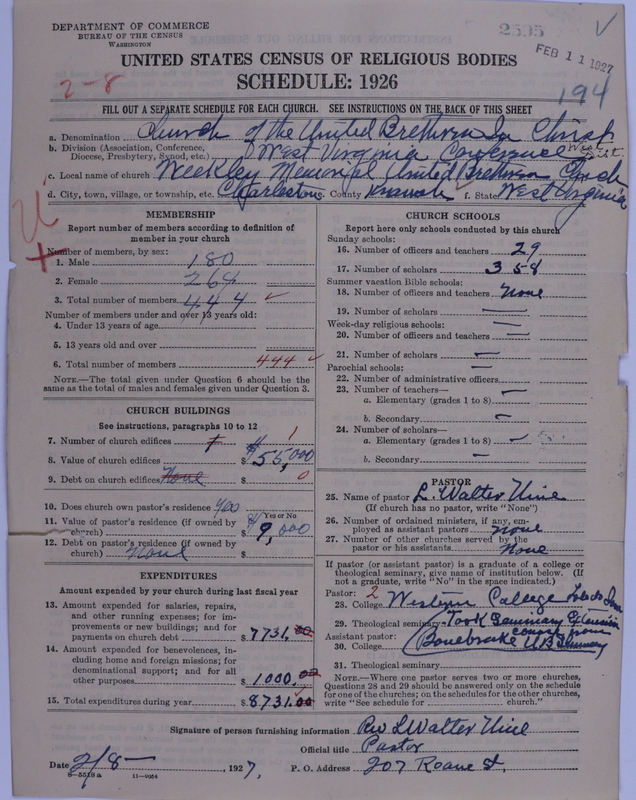 DEPARTMENT OF COMMERCE
BUREAU OF THE CENSUS
WASHINGTON
2595
FEB 11 1927
UNITED STATES CENSUS OF RELIGIOUS BODIES
SCHEDULE: 1926
2-8
194
FILL OUT A SEPARATE SCHEDULE FOR EACH CHURCH. SEE INSTRUCTIONS ON THE BACK OF THIS SHEET
a. Denomination Church of the United Brethren In Christ
b. Division (Association, Conference, Diocese, Presbytery, Synod, etc.) West Virginia Conference West Dist
c. Local name of church Weekley Memorial United Brethren Church
d. City, town, village, or township, etc. Charleston County Kanawha f. State West Virginia
MEMBERSHIP
Report number of members according to definition of
member in your church
Number of members, by sex:
1. Male 180
2. Female 264
3. Total number of members 444
Number of members under and over 13 years old:
4. Under 13 years of age
5. 13 years old and over
6. Total number of members 444
NOTE.—The total given under Question 6 should be the
same as the total of males and females given under Question 3.
CHURCH BUILDINGS
See instructions, paragraphs 10 to 12
7. Number of church edifices 1
8. Value of church edifices $ 55,000
9. Debt on church edifices None $ 0
10. Does church own pastor's residence yes
Yes or No
11. Value of pastor's residence (if owned by
church) $ 9,000
12. Debt on pastor's residence (if owned by
church) None $
EXPENDITURES
Amount expended by your church during last fiscal year
13. Amount expended for salaries, repairs,
and other running expenses; for im-
provements or new buildings; and for
payments on church debt $ 7731.00
14. Amount expended for benevolences, in-
cluding home and foreign missions; for
denominational support; and for all
other purposes $ 1000.00
15. Total expenditures during year $ 8731.00
CHURCH SCHOOLS
Report here only schools conducted by this church
Sunday schools:
16. Number of officers and teachers 29
17. Number of scholars 358
Summer vacation Bible schools:
18. Number of officers and teachers None
19. Number of scholars —
Week-day religious schools: —
20. Number of officers and teachers —
21. Number of scholars —
Parochial schools: —
22. Number of administrative officers
23. Number of teachers—
a. Elementary (grades 1 to 8) —
b. Secondary —
24. Number of scholars—
a. Elementary (grades 1 to 8) —
b. Secondary —
PASTOR
25. Name of pastor L. Walter
(If church has no pastor, write "None")
26. Number of ordained ministers, if any, em-
ployed as assistant pastors none
27. Number of other churches served by the
pastor or his assistants None
If pastor (or assistant pastor) is a graduate of a college or
theological seminary, give name of institution below. (If
not a graduate, write "No" in the space indicated.)
Pastor: 2
28. College Western College Toledo Iowa
29. Theological seminary Took Seminary Extension
Assistant pastor: course from
30. College Bonebrake U.B. Seminary
31. Theological seminary
NOTE.—Where one pastor serves two or more churches,
Questions 28 and 29 should be answered only on the schedule
for one of the churches; on the schedules for the other churches,
write "See schedule for church."
Signature of person furnishing information Rev L Walter
Official title Pastor
Date 2/8— , 1927. P. O. Address 207 Roane St.
6—5518a 11—9054